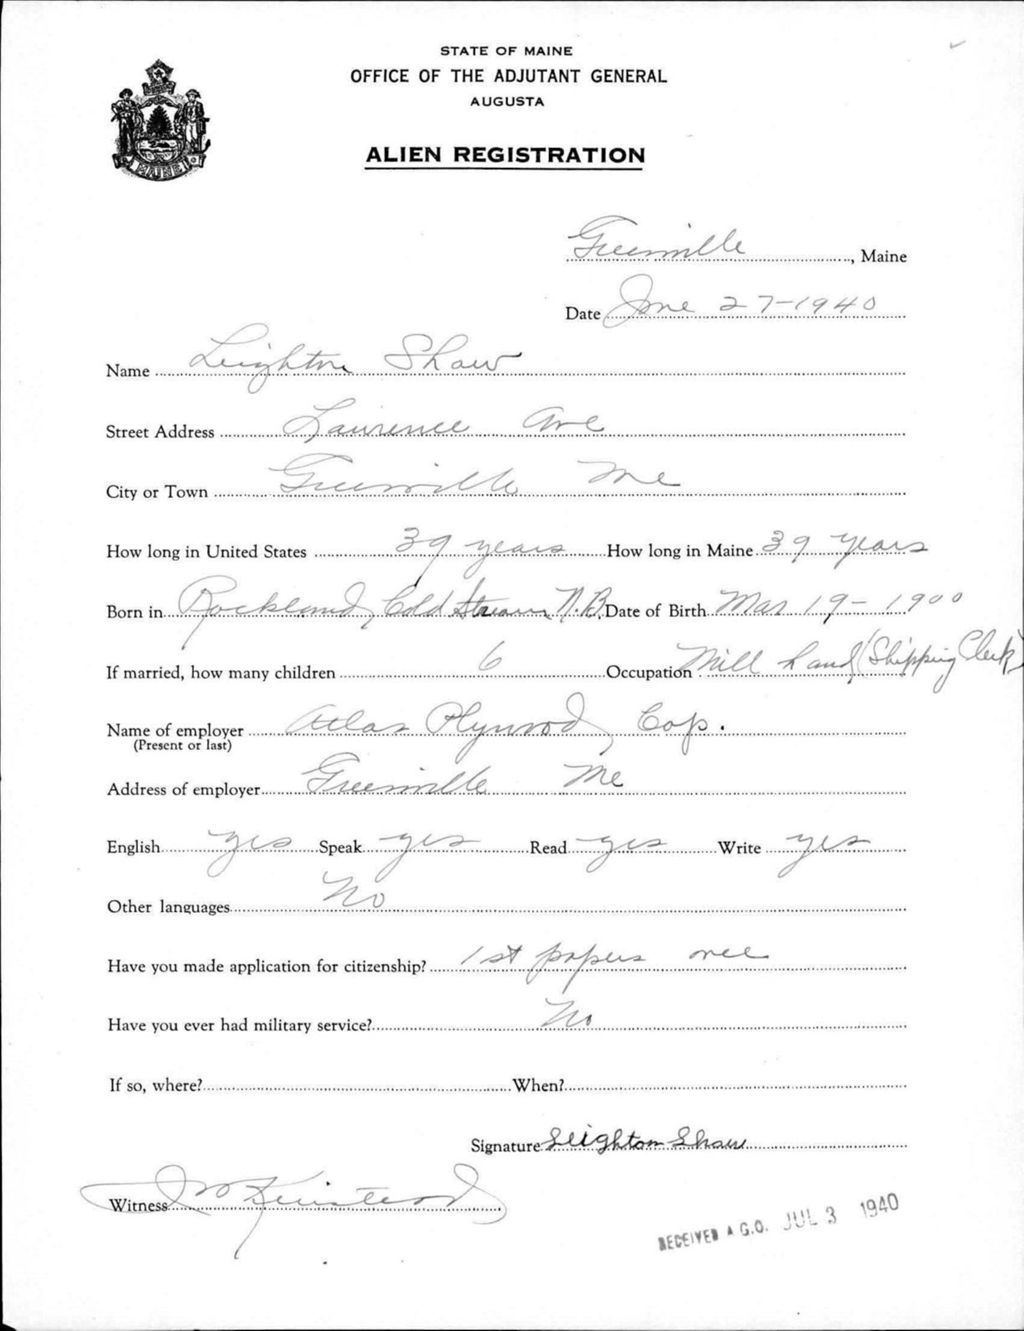 STATE OF MAINE
OFFICE OF THE ADJUTANT GENERAL
AUGUSTA
ALIEN REGISTRATION
MAINE
Greenville, Maine
Date June 27-1940
Name Leighton Shaw
Street Address Lawrence Ave
City or Town Greenville Me
How long in United States 39 years How long in Maine 39 years
Born in Rockland, Cold Stream, N.B. Date of Birth Mar 19-1900
If married, how many children 6 Occupation Mill hand (Shipping Clerk)
Name of employer Atlas Plywood Cop.
(Present or last)
Address of employer Greenville Me
English yes Speak yes Read yes Write yes
Other languages No
Have you made application for citizenship? 1st papers
Have you ever had military service? No
If so, where? When?
Signature Leighton Shaw
Witness
RECEIVED A.G.O. JUL 3 1940